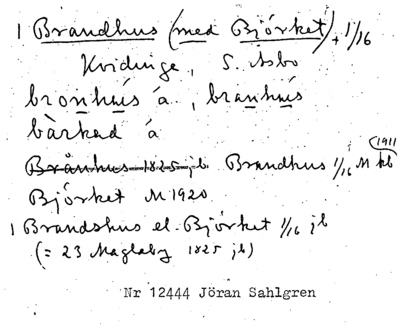 1 Brandhus (med Björket) + 1/16
Kvidinge, S. Åsbo
bronhus á., branhus
bàrkad á
Brånhus 1825 jb Brandhus 1/16 M kb 1911
Björket M 1920
1 Brandshus el. Björket 1/16 jb
(= 23 Maglaby 1825 jb)
Nr 12444 Jöran Sahlgren